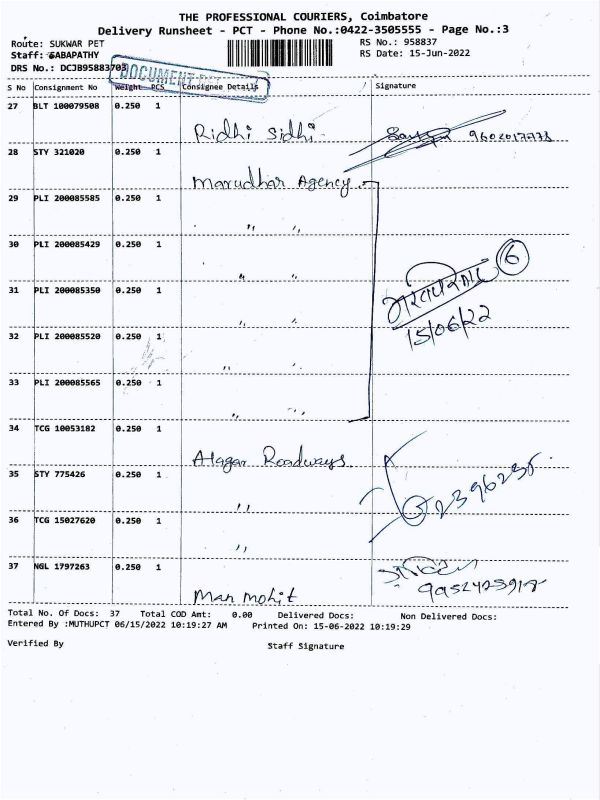 THE PROFESSIONAL COURIERS, Coimbatore
Delivery Runsheet - PCT - Phone No.:0422-3505555 - Page No.:3
Route: SUKWAR PET RS No.: 958837
Staff: SABAPATHY RS Date: 15-Jun-2022
DRS No.: DCJB95883703
DOCUMENT
S No Consignment No Weight PCS Consignee Details Signature
27 BLT 100079508 0.250 1
Ridhi Sidhi
28 STY 321020 0.250 1
Marudhar Agency
29 PLI 200085585 0.250 1
" "
30 PLI 200085429 0.250 1
" "
31 PLI 200085350 0.250 1
6
" "
15/06/22
32 PLI 200085520 0.250 1
" "
33 PLI 200085565 0.250 1
" "
34 TCG 10053182 0.250 1
Alagar Roadways
35 STY 775426 0.250 1
"
36 TCG 15027620 0.250 1
"
37 NGL 1797263 0.250 1
Man mohit
Total No. Of Docs: 37 Total COD Amt: 0.00 Delivered Docs: Non Delivered Docs:
Entered By :MUTHUPCT 06/15/2022 10:19:27 AM Printed On: 15-06-2022 10:19:29
Verified By Staff Signature